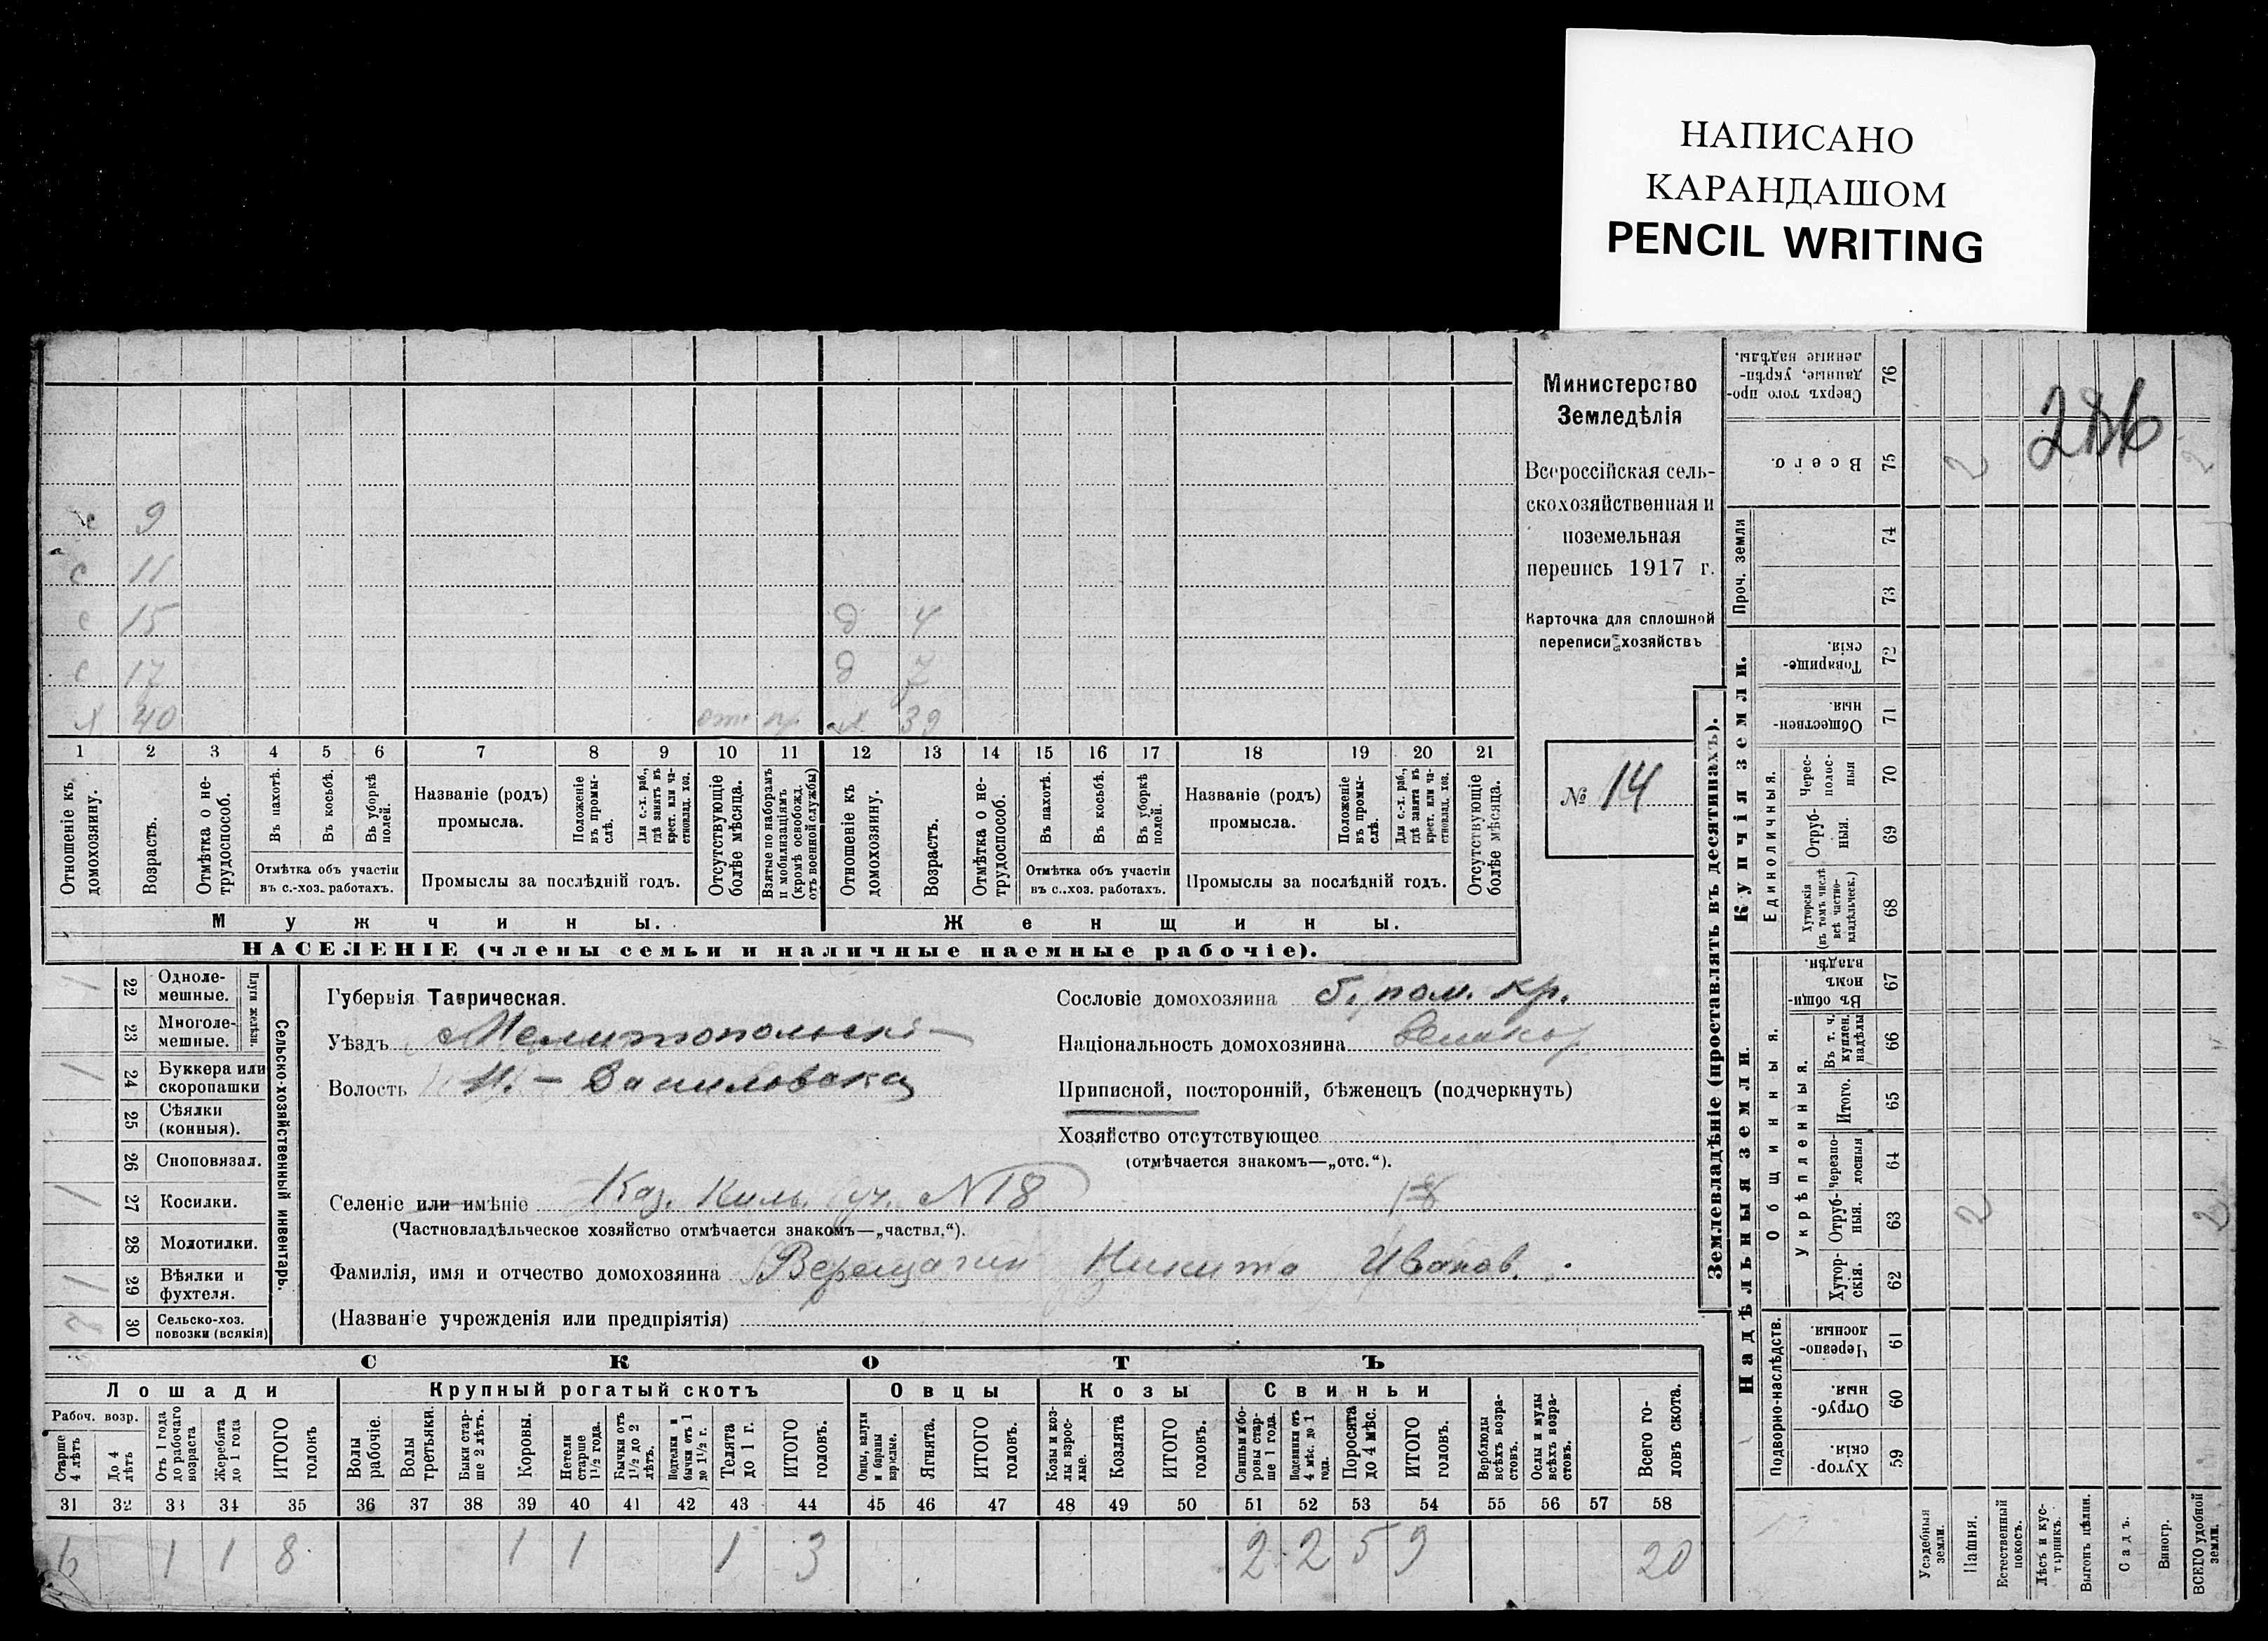 НАПИСАНО
КАРАНДАШОМ
PENCIL WRITING
с 9
с 11
с 15 д 4
с 17 д 7
х 40 39
1 2 3 4 5 6 7 8 9 10 11 12 13 14 15 16 17 18 19 20 21
Отношеніе къ домохозяину.
Возрастъ.
Отмѣтка о не-
трудоспособ.
Въ пахотѣ.
Въ косьбѣ.
Въ уборкѣ полей.
Отмѣтка объ участіи
въ с.-хоз. работахъ.
Названіе (родъ)
промысла.
Положеніе
въ промы-
слѣ.
Для с.-х. раб.,
гдѣ занятъ въ
крест. или ча-
стновлад. хоз.
Промыслы за послѣдній годъ.
Отсутствующіе
болѣе мѣсяца.
Взятые по наборамъ
и мобилизаціямъ
(кромѣ освобожд.
отъ военной службы)
Отношеніе къ
домохозяину.
Возрастъ.
Отмѣтка о не-
трудоспособ.
Въ пахотѣ.
Въ косьбѣ.
Въ уборкѣ
полей.
Отмѣтка объ участіи
въ с..хоз. работахъ.
Названіе (родъ)
промысла.
Положеніе
въ промы-
слѣ.
Для с.-х. раб.,
гдѣ занята въ
крест. или ча-
стновлад. хоз.
Промыслы за послѣдній годъ.
Отсутствующіе
болѣе мѣсяца.
Мужчины.
Женщины.
НАСЕЛЕНІЕ (члены семьи и наличные наемные рабочіе).
Министерство
Земледѣлія
Всероссійская сель-
скохозяйственная и
поземельная
перепись 1917 г.
Карточка для сплошной
переписи хозяйствъ
№ 14
22 Одноле-
мешные.
23 Многоле-
мешные.
Плуги желѣзн.
24 Буккера или
скоропашки
25 Сѣялки
(конныя).
26 Сноповязал.
27 Косилки.
28 Молотилки.
29 Вѣялки и
фухтеля.
30 Сельско-хоз.
повозки (всякія)
Сельско-хозяйственный инвентарь.
Губернія Таврическая.
Уѣздъ Мелитопольскі
Волость Н.-Василовска
Сословіе домохозяина б. пом. кр.
Національность домохозяина
Приписной, посторонній, бѣженецъ (подчеркнуть)
Хозяйство отсутствующее
(отмѣчается знакомъ—„отс.“).
Селеніе или имѣніе Каз. Киль. уч. N 18 18
(Частновладѣльческое хозяйство отмѣчается знакомъ—„частвл.“).
Фамилія, имя и отчество домохозяина Верещагин Никита Иванов.
(Названіе учрежденія или предпріятія)
СКОТЪ
Лошади
Крупный рогатый скотъ
Овцы
Козы
Свиньи
Рабоч. возр.
Старше
4 лѣтъ
До 4
лѣтъ
Отъ 1 года
до рабочаго
возраста
Жеребята
до 1 года
ИТОГО
головъ
Волы
рабочіе.
Волы
третьяки.
Быки стар-
ше 2 лѣтъ.
Коровы.
Нетели
старше
1½ года.
Бычки отъ
1½ до 2
лѣтъ.
Подтелки и
бычки отъ 1
до 1½ г.
Телята
до 1 г.
ИТОГО
головъ.
Овцы, валухи
и бараны
взрослые.
Ягнята.
ИТОГО
головъ.
Козы и коз-
лы взрос-
лые.
Козлята
ИТОГО
головъ.
Свиньи и бо-
ровы стар-
ше 1 года.
Подсвинки отъ
4 мѣс. до 1
года.
Поросята
до 4 мѣс.
ИТОГО
головъ.
Верблюды
всѣхъ возра-
стовъ.
Ослы и мулы
всѣхъ возра-
стовъ.
Всего го-
ловъ скота.
31 32 33 34 35 36 37 38 39 40 41 42 43 44 45 46 47 48 49 50 51 52 53 54 55 56 57 58
6 1 1 8 1 1 1 3 2 2 5 9 20
Землевладѣніе (проставлять въ десятинахъ).
Сверхъ того про-
данные, укрѣп-
ленные надѣлы.
76
Всего.
75
Проч. земли
74
73
Купчія земли.
Товарище-
скія.
72
Обществен-
ныя.
71
Единоличныя.
Черес-
полос-
ныя
70
Отруб-
ныя.
69
Хуторскія
(въ томъ числѣ
всѣ частно-
владѣльческ.)
68
Надѣльныя земли.
Общинныя.
Въ общи-
номъ
владѣн.
67
Укрѣпленныя.
Въ т. ч.
куплен.
надѣлы
66
Итого.
65
Черезпо-
лосныя
64
Отруб-
ныя.
63
Хутор-
скія.
62
Подворно-наслѣдств.
Черезпо-
лосныя.
61
Отруб-
ныя.
60
Хутор-
скія.
59
286
2 2
2 2
Усадебныя
земли.
Пашня.
Естественный
покосъ.
Лѣсъ и кус-
тарникъ.
Выгонъ цѣлин.
Садъ.
Виногр.
ВСЕГО удобной
земли.